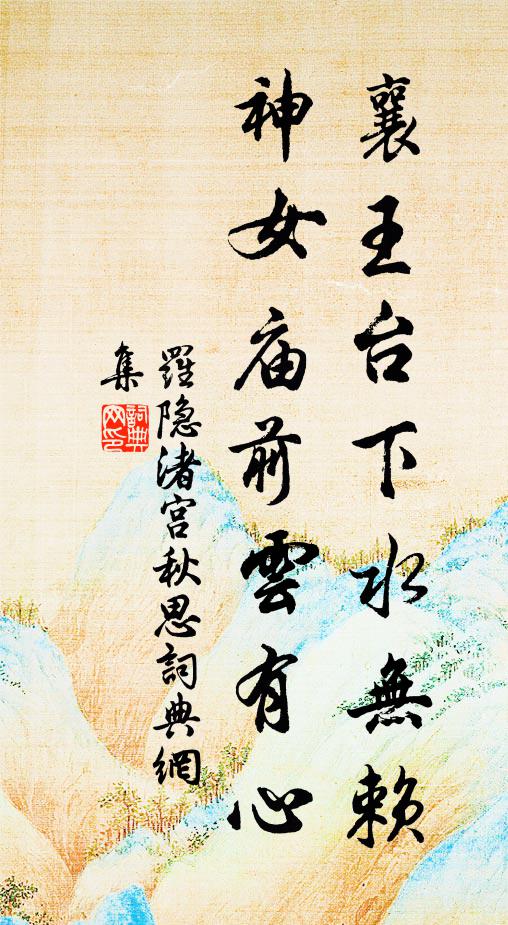 襄王台下水無賴
神女庙前雲有心
羅隐渚宫秋思詞典網
集
詞典网印